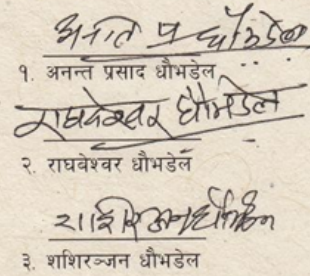 अनन्त प्र धौभडेल
१. अनन्त प्रसाद धौभडेल
राघबेश्वर धौभडेल
२. राघबेश्वर धौभडेल
शशिरञ्जन धौभडेल
३. शशिरञ्जन धौभडेल